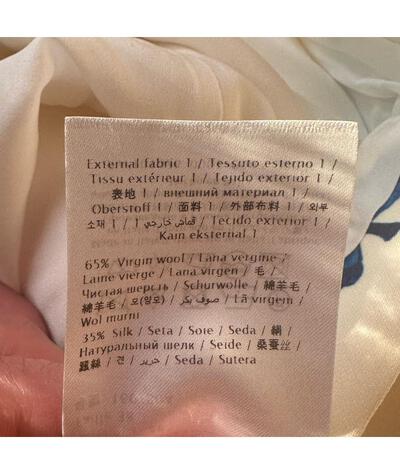 External fabric 1 / Tessuto esterno 1 /
Tissu extérieur 1 / Tejido exterior 1 /
表地 1 / внешний материал 1 /
Oberstoff 1 / 面料 1 / 外部布料 1 / 외부
소재 1 / قماش خارجي 1 / Tecido exterior 1 /
Kain eksternal 1
65% Virgin wool / Lana vergine /
Laine vierge / Lana virgen / 毛 /
Чистая шерсть / Schurwolle / 綿羊毛 /
綿羊毛 / 모(양모) / صوف بكر / Lã virgem /
Wol murni
35% Silk / Seta / Soie / Seda / 絹 /
Натуральный шелк / Seide / 桑蚕丝 /
蠶絲 / 견 / حرير / Seda / Sutera